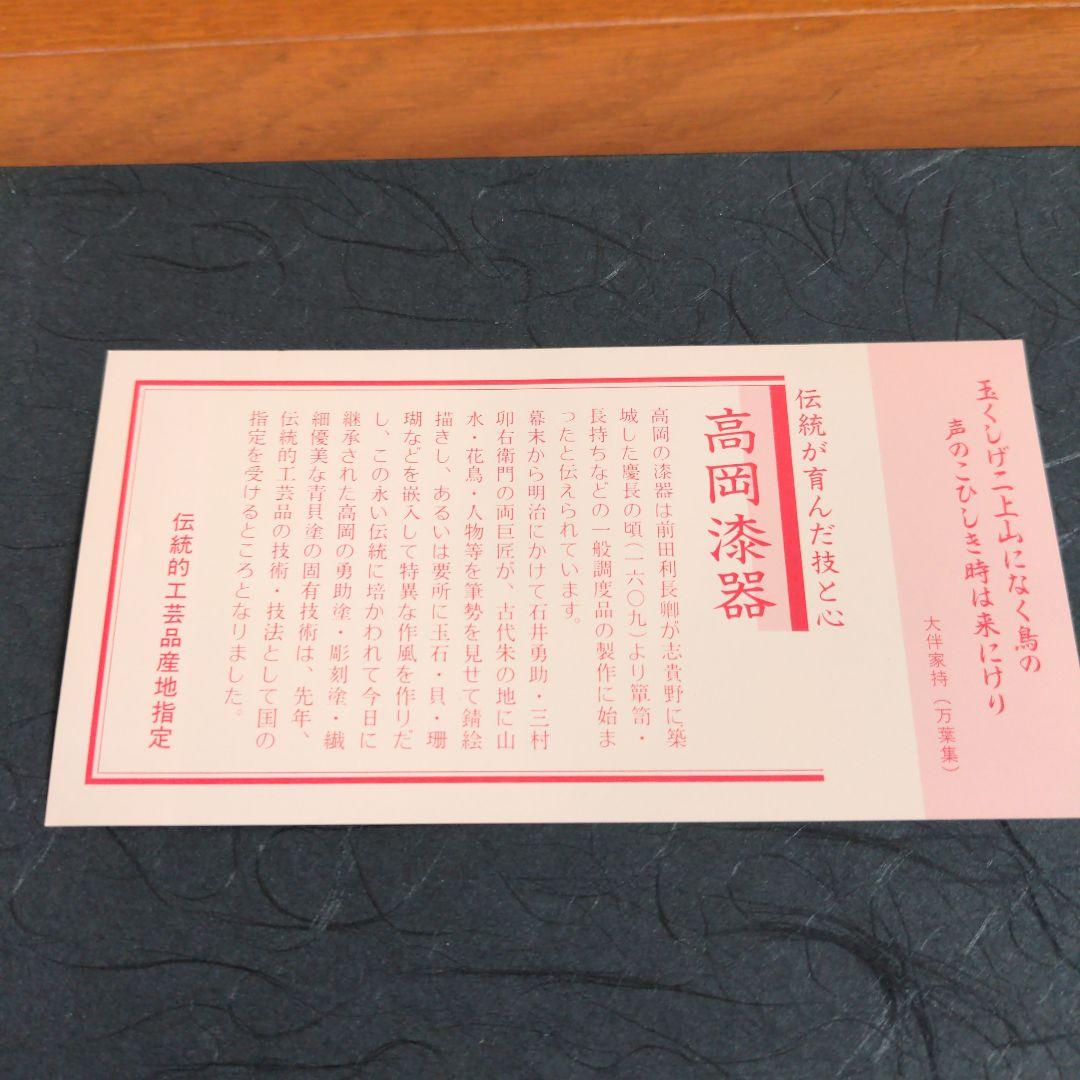 玉くしげ二上山になく鳥の
声のこひしき時は来にけり
大伴家持（万葉集）
伝統が育んだ技と心
高岡漆器
高岡の漆器は前田利長卿が志貴野に築
城した慶長の頃（一六〇九）より箪笥・
長持ちなどの一般調度品の製作に始ま
ったと伝えられています。
幕末から明治にかけて石井勇助・三村
卯右衛門の両巨匠が、古代朱の地に山
水・花鳥・人物等を筆勢を見せて錆絵
描きし、あるいは要所に玉石・貝・珊
瑚などを嵌入して特異な作風を作りだ
し、この永い伝統に培かわれて今日に
継承された高岡の勇助塗・彫刻塗・繊
細優美な青貝塗の固有技術は、先年、
伝統的工芸品の技術・技法として国の
指定を受けるところとなりました。
伝統的工芸品産地指定